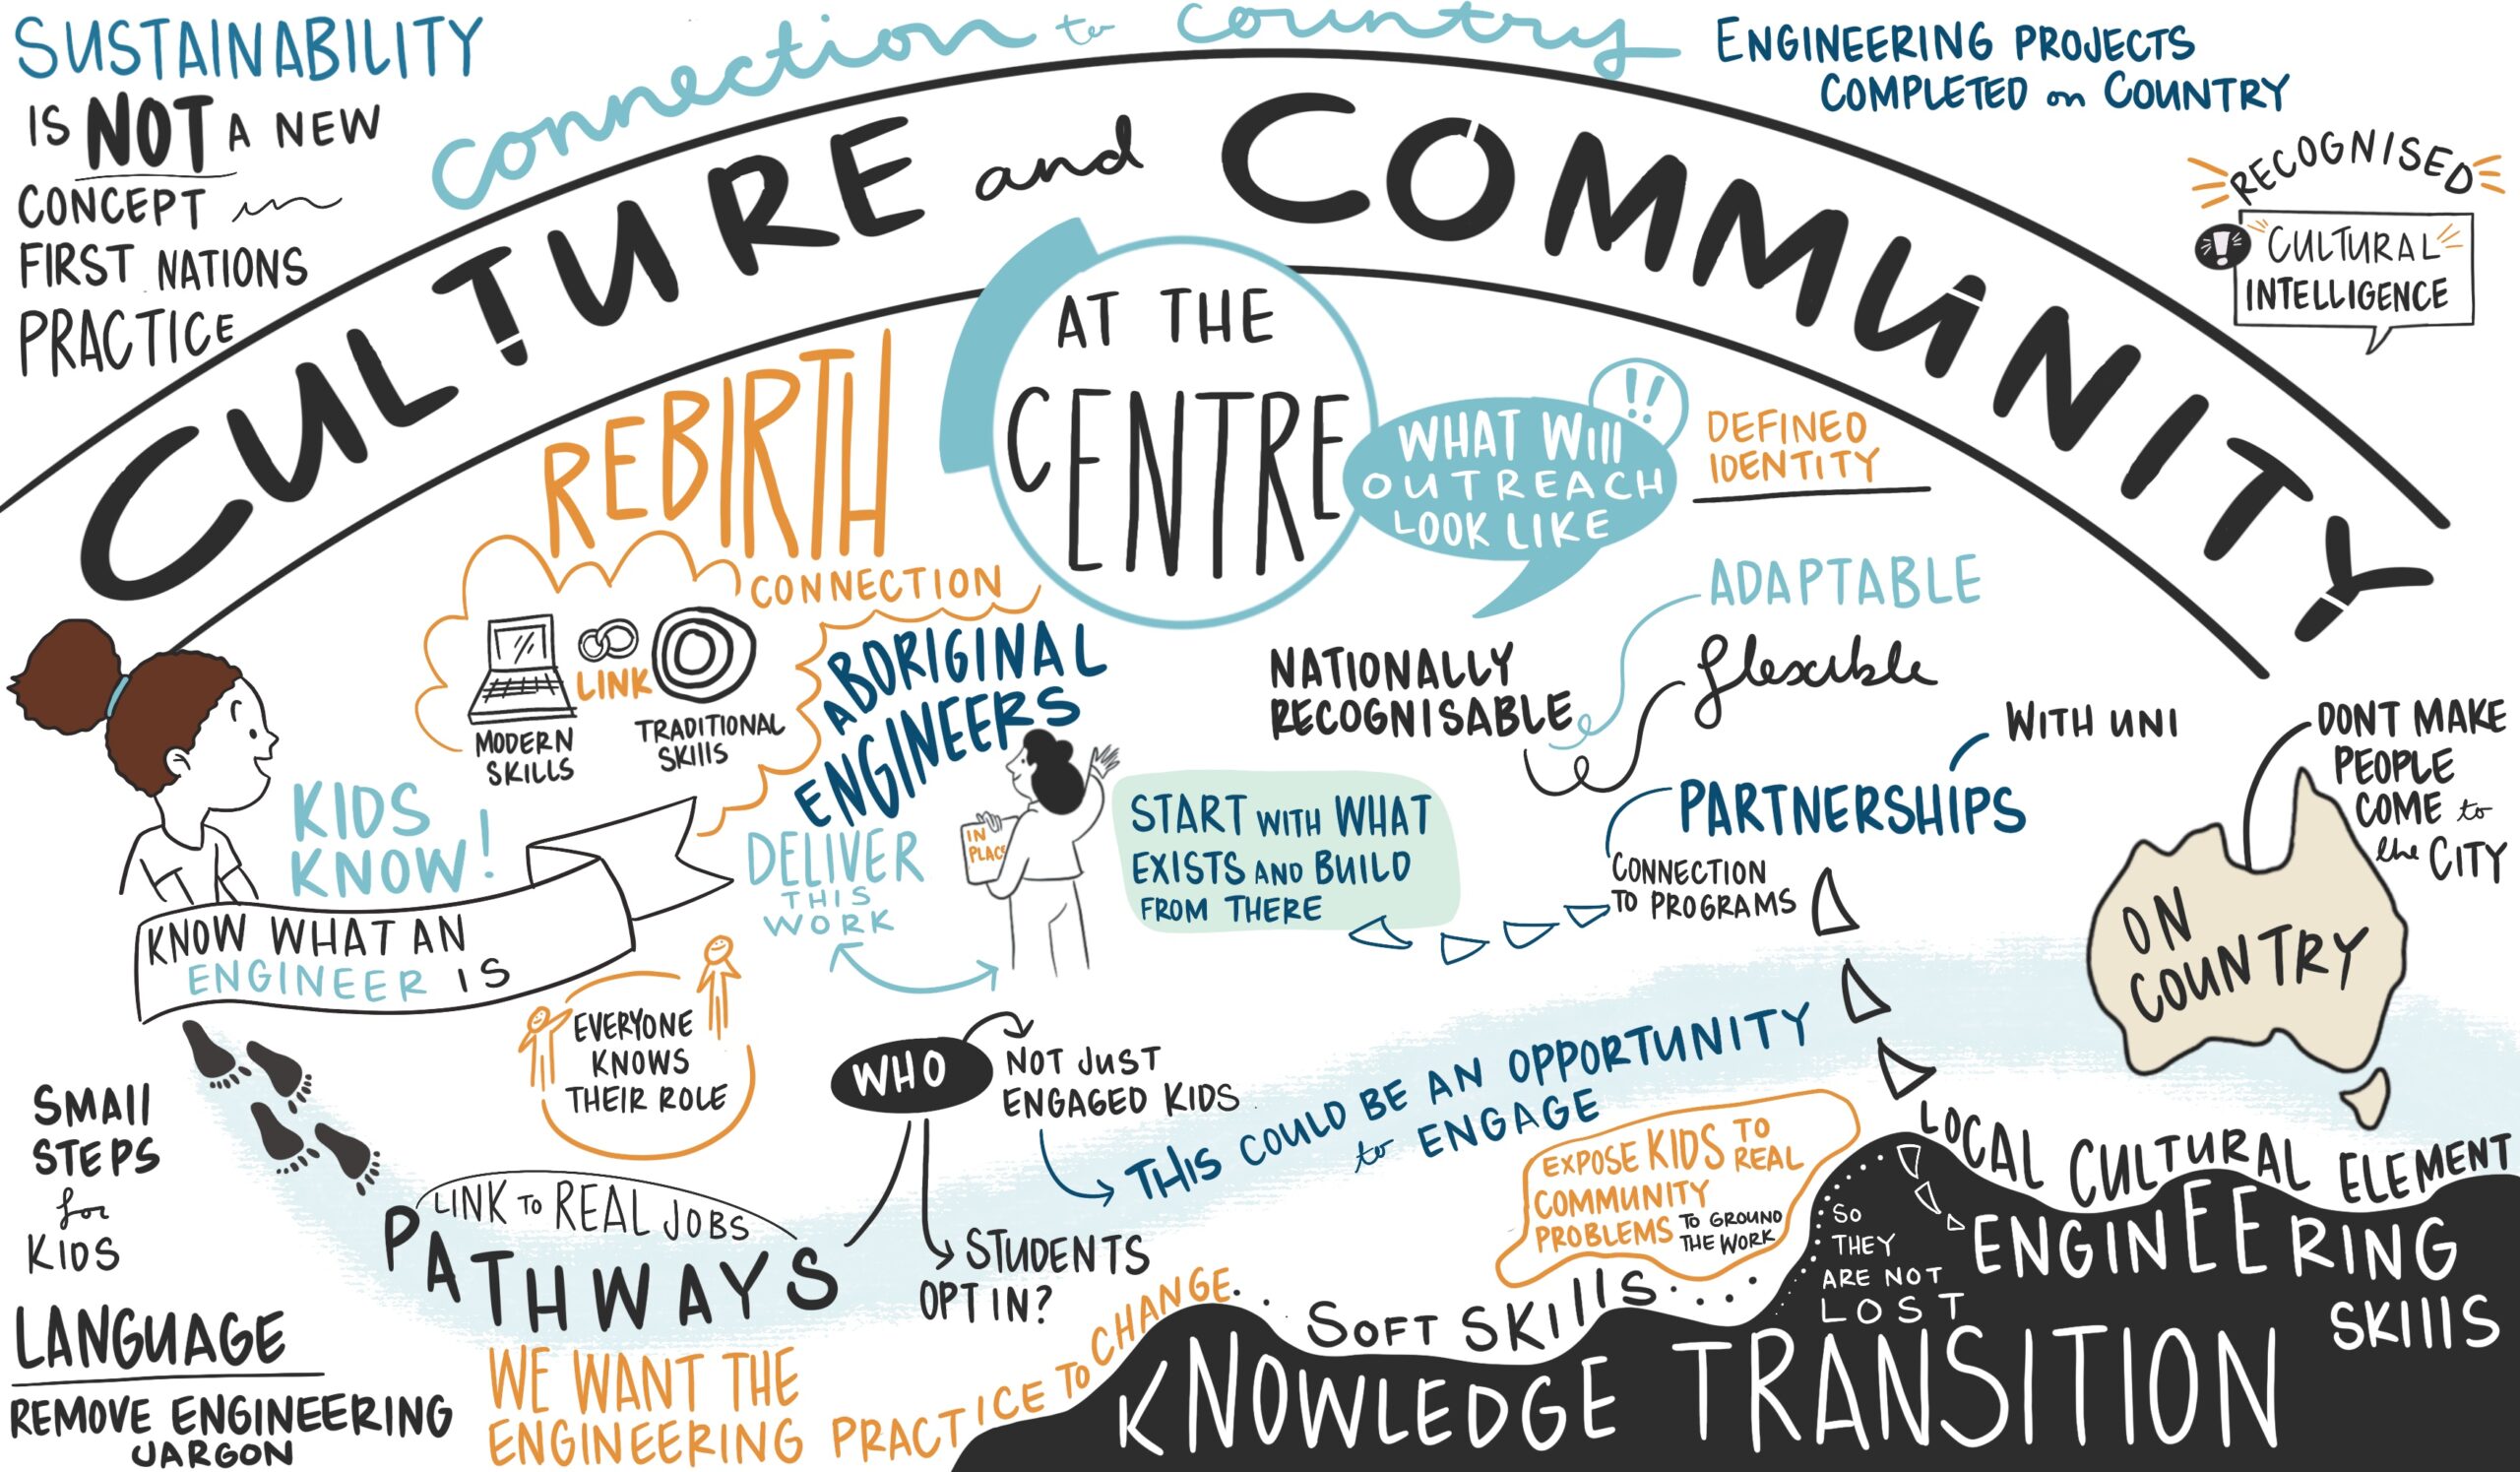 SUSTAINABILITY
IS NOT A NEW
CONCEPT
FIRST NATIONS
PRACTICE
connection to country
ENGINEERING PROJECTS
COMPLETED on COUNTRY
RECOGNISED
CULTURAL
INTELLIGENCE
CULTURE and COMMUNITY
AT THE
CENTRE
REBIRTH
CONNECTION
LINK
MODERN
SKILLS
TRADITIONAL
SKILLS
ABORIGINAL
ENGINEERS
DELIVER
THIS
WORK
IN
PLACE
WHAT WIll
OUTREACH
LOOK LIKE
!!
DEFINED
IDENTITY
ADAPTABLE
flexible
NATIONALLY
RECOGNISABLE
WITH UNI
PARTNERSHIPS
CONNECTION
TO PROGRAMS
START WITH WHAT
EXISTS AND BUILD
FROM THERE
DONT MAKE
PEOPLE
COME to
the CITY
ON
COUNTRY
KIDS
KNOW!
KNOW WHAT AN
ENGINEER IS
EVERYONE
KNOWS
THEIR ROLE
SMAll
STEPS
for
KIDS
LINK TO REAL JOBS
PATHWAYS
WHO
NOT JUST
ENGAGED KIDS
THIS COULD BE AN OPPORTUNITY
to ENGAGE
STUDENTS
OPT IN?
EXPOSE KIDS TO
REAL
COMMUNITY
PROBLEMS TO GROUND
THE WORK
LANGUAGE
REMOVE ENGINEERING
JARGON
WE WANT THE
ENGINEERING PRACTICE TO CHANGE..
SOFT SKIllS...
SO
THEY
ARE NOT
LOST
LOCAL CULTURAL ELEMENT
ENGINEERING
SKIllS
KNOWLEDGE TRANSITION